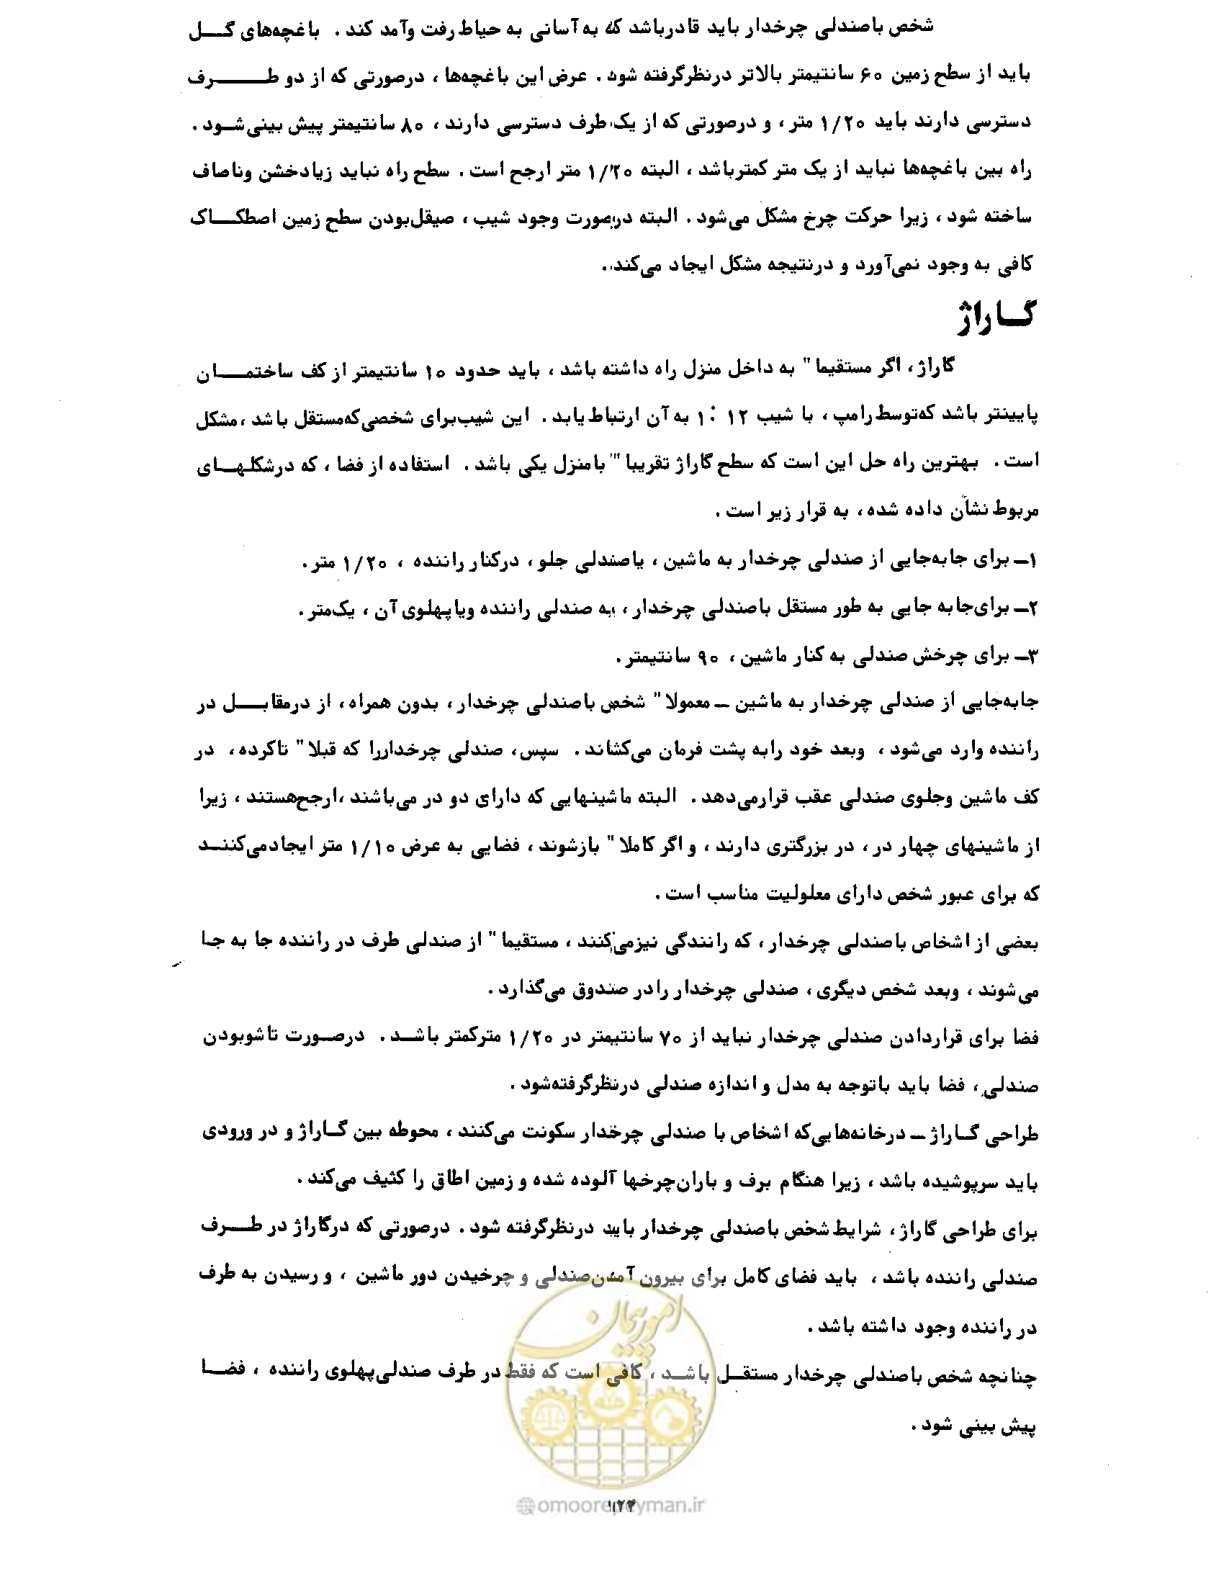 شخص باصندلی چرخدار باید قادرباشد که به آسانی به حیاط رفت وآمد کند . باغچه‌های گــل
باید از سطح زمین ۶۰ سانتیمتر بالاتر درنظرگرفته شود . عرض این باغچه‌ها ، درصورتی که از دو طــــرف
دسترسی دارند باید ۱/۲۰ متر ، و درصورتی که از یک طرف دسترسی دارند ، ۸۰ سانتیمتر پیش بینی‌شـود .
راه بین باغچه‌ها نباید از یک متر کمترباشد ، البته ۱/۲۰ متر ارجح است . سطح راه نباید زیادخشن وناصاف
ساخته شود ، زیرا حرکت چرخ مشکل می‌شود . البته درصورت وجود شیب ، صیقل‌بودن سطح زمین اصطکــاک
کافی به وجود نمی‌آورد و درنتیجه مشکل ایجاد می‌کند .
گــاراژ
گاراژ ، اگر مستقیما" به داخل منزل راه داشته باشد ، باید حدود ۱۰ سانتیمتر از کف ساختمـــان
پایینتر باشد که‌توسط رامپ ، با شیب ۱۲ : ۱ به آن ارتباط یابد . این شیب‌برای شخصی‌که‌مستقل باشد ،مشکل
است . بهترین راه حل این است که سطح گاراژ تقریبا" بامنزل یکی باشد . استفاده از فضا ، که درشکلهــای
مربوط نشان داده شده ، به قرار زیر است .
۱ــ برای جابه‌جایی از صندلی چرخدار به ماشین ، یاصندلی جلو ، درکنار راننده ، ۱/۲۰ متر .
۲ــ برای‌جابه جایی به طور مستقل باصندلی چرخدار ، به صندلی راننده ویاپهلوی آن ، یک‌متر .
۳ــ برای چرخش صندلی به کنار ماشین ، ۹۰ سانتیمتر .
جابه‌جایی از صندلی چرخدار به ماشین ــ معمولا" شخص باصندلی چرخدار ، بدون همراه ، از درمقابــل در
راننده وارد می‌شود ، وبعد خود رابه پشت فرمان می‌کشاند . سپس ، صندلی چرخداررا که قبلا" تاکرده ، در
کف ماشین وجلوی صندلی عقب قرارمی‌دهد . البته ماشینهایی که دارای دو در می‌باشند ،ارجح‌هستند ، زیرا
از ماشینهای چهار در ، در بزرگتری دارند ، و اگر کاملا" بازشوند ، فضایی به عرض ۱/۱۰ متر ایجادمی‌کننـد
که برای عبور شخص دارای معلولیت مناسب است .
بعضی از اشخاص باصندلی چرخدار ، که رانندگی نیزمی‌کنند ، مستقیما" از صندلی طرف در راننده جا به جـا
می‌شوند ، وبعد شخص دیگری ، صندلی چرخدار رادر صندوق می‌گذارد .
فضا برای قراردادن صندلی چرخدار نباید از ۷۰ سانتیمتر در ۱/۲۰ مترکمتر باشـد . درصـورت تاشوبودن
صندلی ، فضا باید باتوجه به مدل و اندازه صندلی درنظرگرفته‌شود .
طراحی گـاراژ ــ درخانه‌هایی‌که اشخاص با صندلی چرخدار سکونت می‌کنند ، محوطه بین گـاراژ و در ورودی
باید سرپوشیده باشد ، زیرا هنگام برف و باران‌چرخها آلوده شده و زمین اطاق را کثیف می‌کند .
برای طراحی گاراژ ، شرایط شخص باصندلی چرخدار باید درنظرگرفته شود . درصورتی که درگاراژ در طــرف
صندلی راننده باشد ، باید فضای کامل برای بیرون آمدن‌صندلی و چرخیدن دور ماشین ، و رسیدن به طرف
در راننده وجود داشته باشد .
چنانچه شخص باصندلی چرخدار مستقـل باشـد ، کافی است که فقط در طرف صندلی‌پهلوی راننده ، فضـا
پیش بینی شود .
امور پیمان
omoorepeyman.ir
۱۲۳